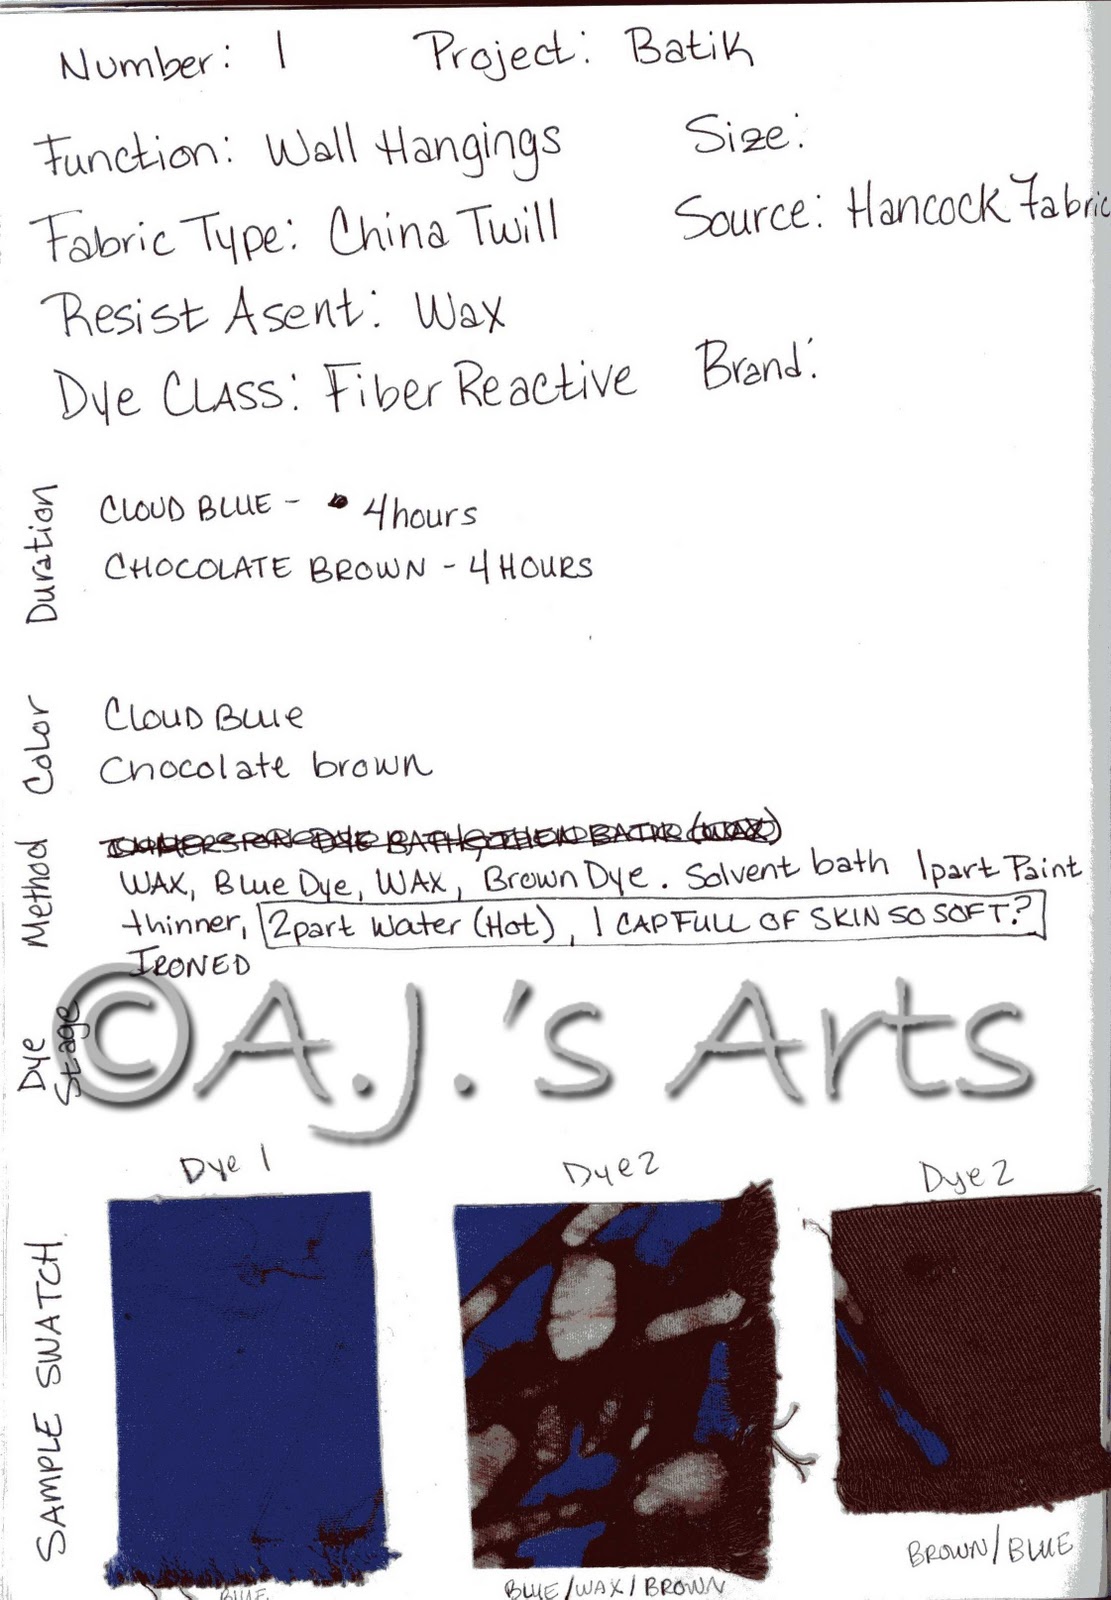 Number: 1 Project: Batik
Function: Wall Hangings Size:
Fabric Type: China Twill Source: Hancock Fabric
Resist Asent: Wax
Dye CLASS: Fiber Reactive Brand:
Duration
CLOUD BLUE - 4 hours
CHOCOLATE BROWN - 4 HOURS
Color
CLOUD BLUE
Chocolate brown
Method
WAX, BLUE Dye, WAX, Brown Dye. Solvent bath 1part Paint
thinner, 2part Water (Hot), 1 CAPFULL OF SKIN SO SOFT?
IRONED
Dye Stage
©A.J.'s Arts
Dye 1 Dye 2 Dye 2
SAMPLE SWATCH
BROWN/BLUE
BLUE BLUE/WAX/BROWN